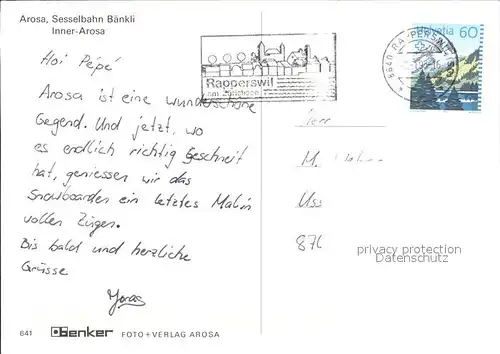 Arosa, Sesselbahn Bänkli
Inner-Arosa
Hoi Pépé
Arosa ist eine wunderschöne
Gegend. Und jetzt, wo
es endlich richtig geschneit
hat, geniessen wir das
Snowboarden ein letztes Mal in
vollen Zügen.
Bis bald und herzliche
Grüsse
Jonas
641 Benker FOTO+VERLAG AROSA
Rapperswil
am Zürichsee
8640 RAPPERSWIL
Helvetia 60
Herr
M.
876
privacy protection